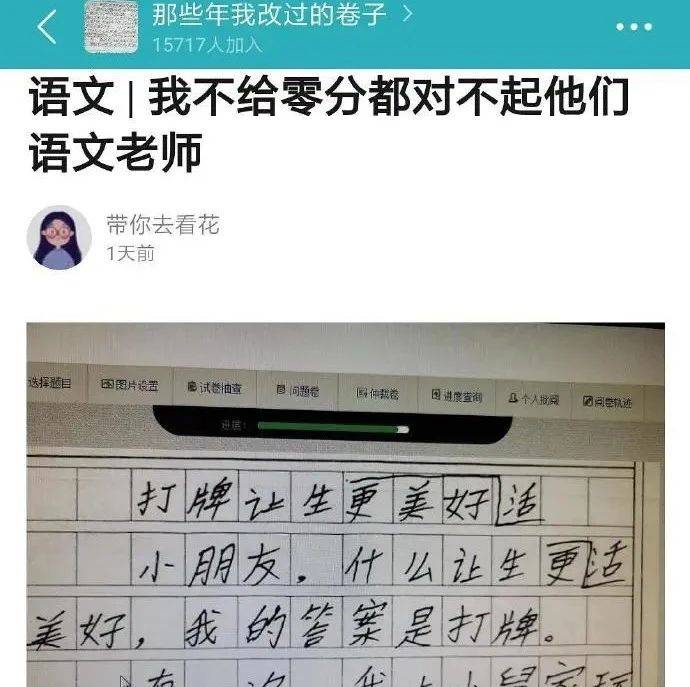 那些年我改过的卷子
15717人加入
语文 | 我不给零分都对不起他们
语文老师
带你去看花
1天前
选择题目 图片设置 试卷抽查 问题卷 仲裁卷 进度查询 个人批阅 阅卷轨迹
打牌让生更美好活
小朋友，什么让生更活
美好，我的答案是打牌。